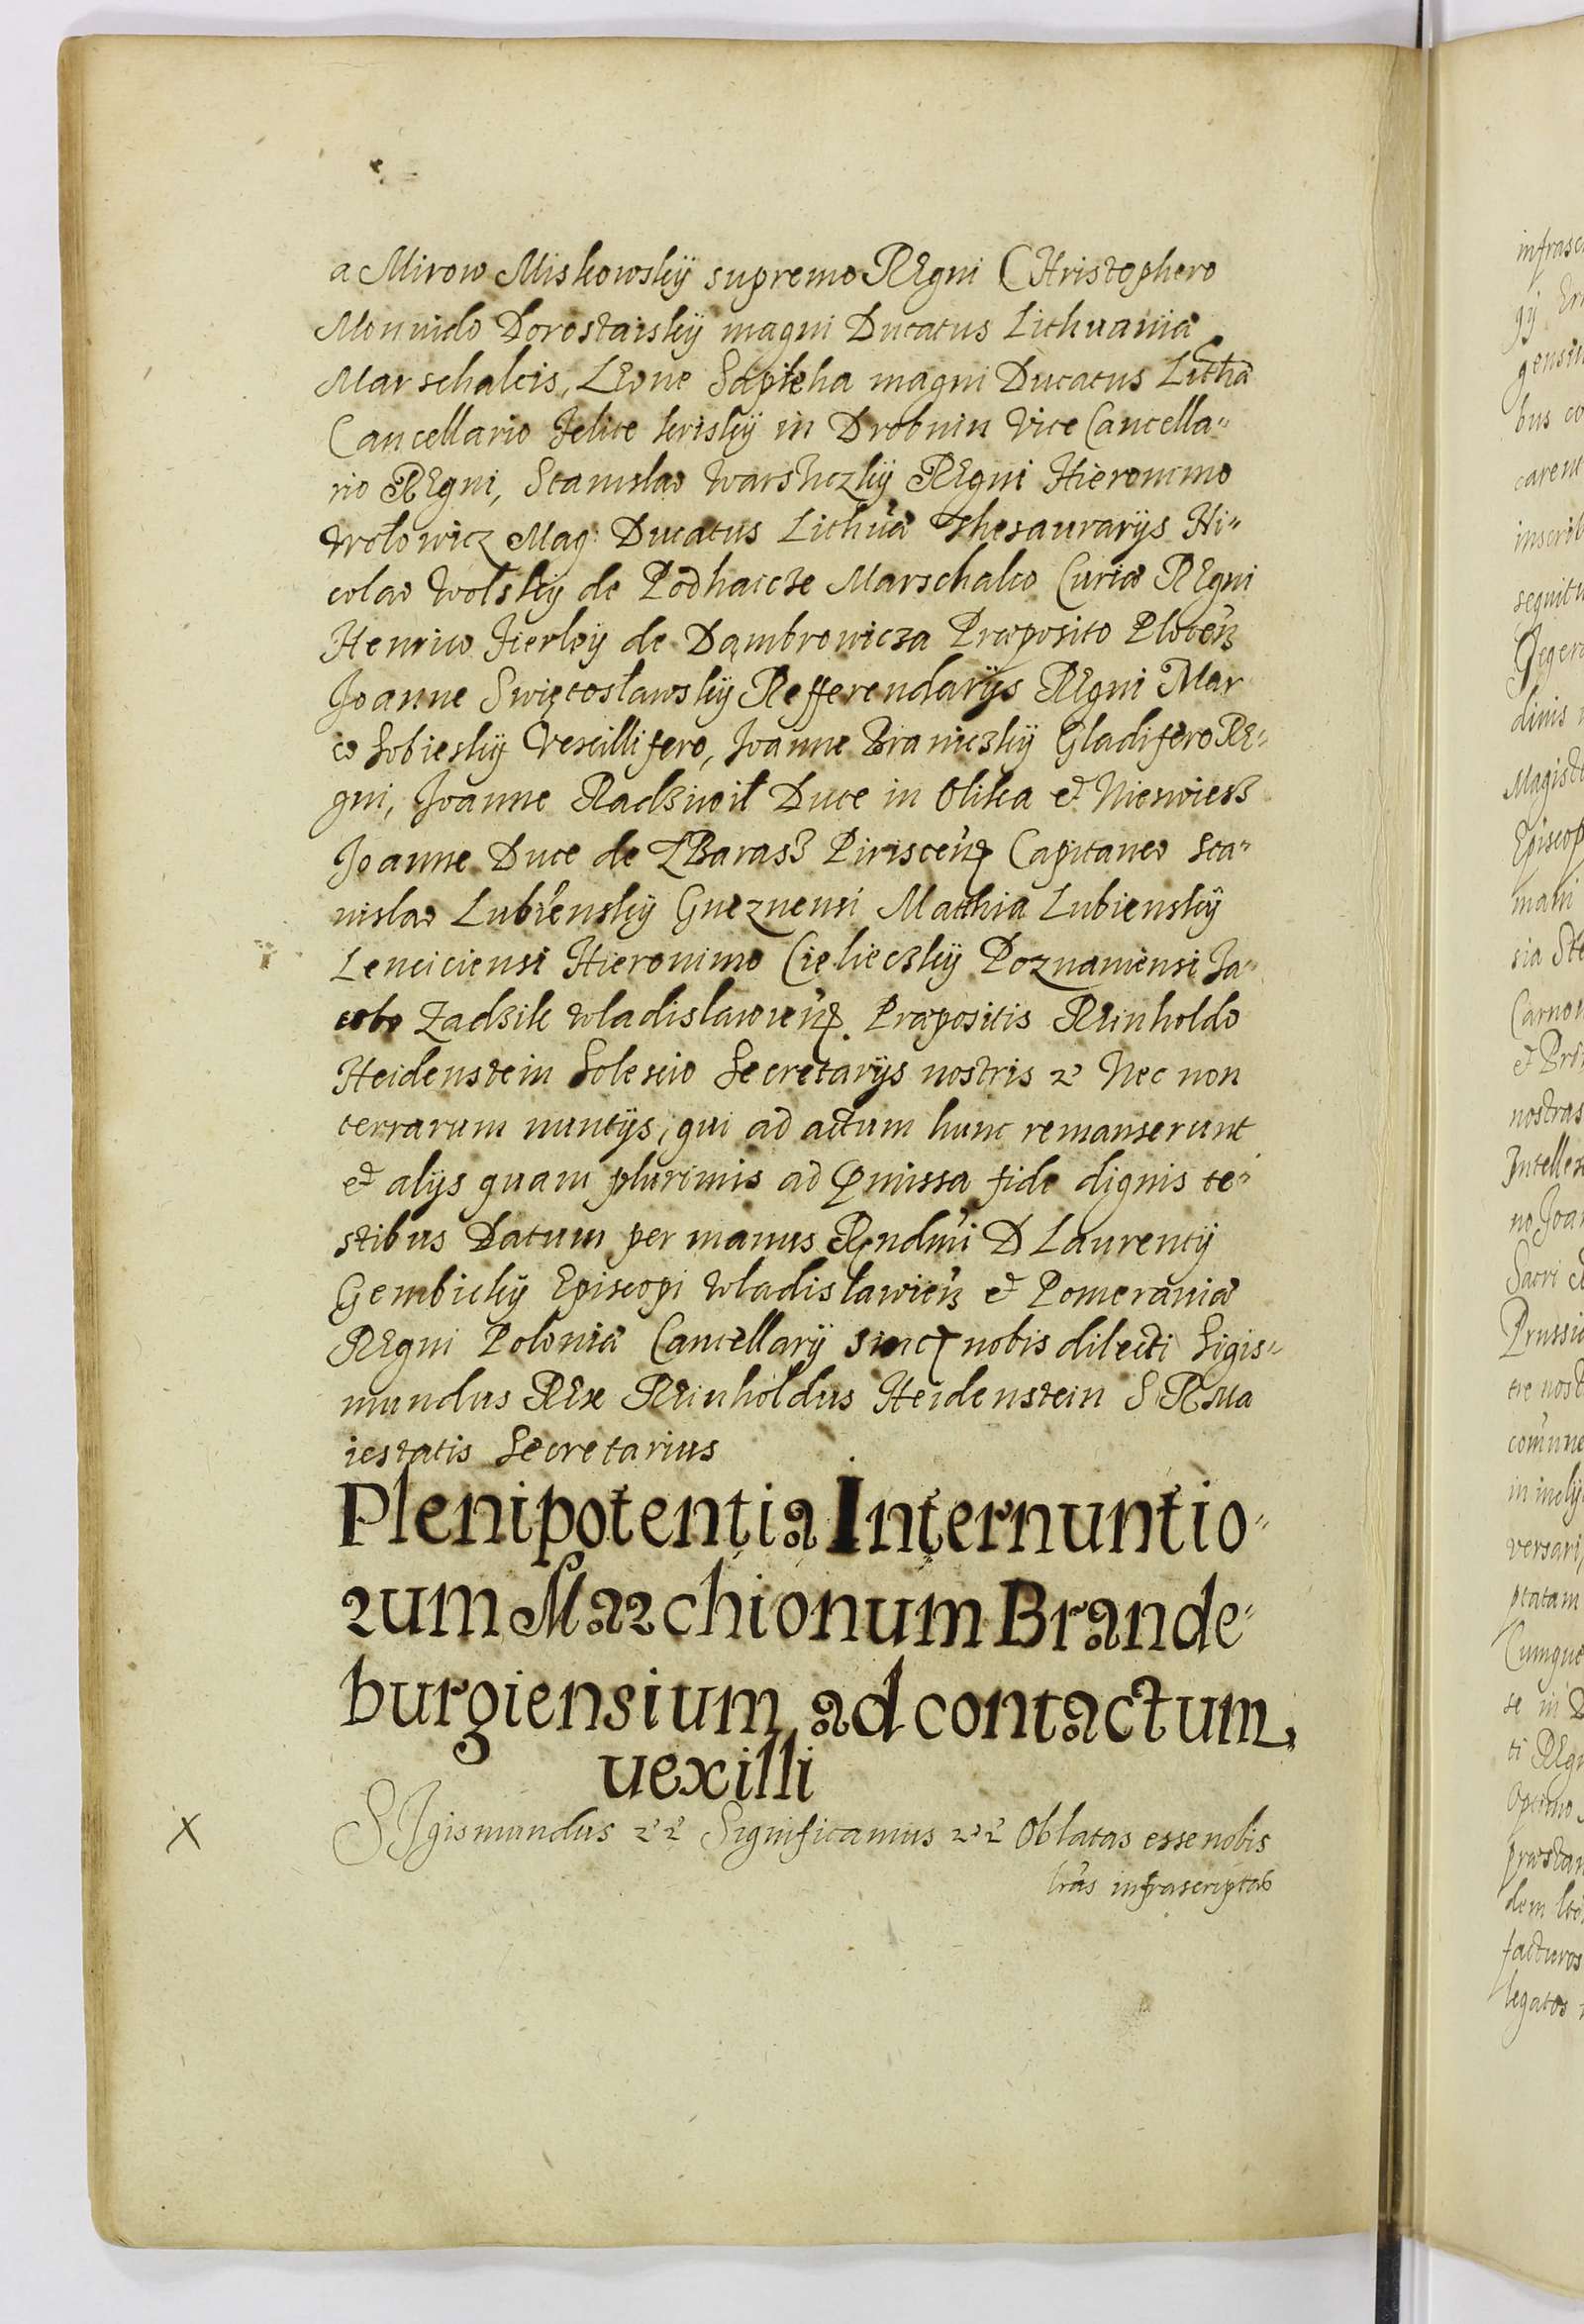 a Mirow Miskowskÿ supremo REgni CHristophero
Monuido Dorostaiskÿ magni Ducatus Lithuaniæ
Marschalcis, LEone Sapieha magni Ducatus Lithã
Cancellario Felice kriskÿ in Drobnin Vice Cancella"
rio REgni, Stanislao WarsHczkÿ REgni Hieronimo
Wołowicz Mag: Ducatus Lithũa Thesaurarÿs Ni"
colao Wolskÿ de Podhaicze Marschalco Curiæ REgni
Henrico Fierleÿ de Dąmbrowicza Præposito Plocen̄
Joanne Swiętosławskÿ Refferendarÿs REgni Mar
co Sobieskÿ Vexillifero, Joanne Braniczkÿ Gladifero RE"
gni, Joanne Radziwil Duce in Olika et Nieswiesz
Joanne Duce de ZBarasz Piriscen̄ Capitaneo Sta"
nislao Lubienskÿ Gneznensi Mathia Lubienskÿ
Lenciciensi Hieronimo Cieliecżkÿ Poznaniensi Ja"
cobo Zadzik Wladislawien̄. Præpositis REinholdo
Heidenstein Solescio Secretarÿs nostris et Nec non
terrarum nuntÿs, qui ad actum hunc remanserunt
et alÿs quam plurimis ad Pmissa fide dignis te"
stibus Datum per manus Rndmi D Laurentÿ
Gembickÿ Episcopi Wladislawien̄ et Pomeraniæ
REgni Poloniæ Cancellarÿ Sincę nobis dilecti Sigis"
mundus REx REinholdus Heidenstein S R Ma
iestatis Secretarius
Plenipotentia Internuntio"
rum Marchionum Brande"
burgiensium ad contactum
uexilli
X SJgismundus etc Significamus etc Oblatas esse nobis
lrãs infrascriptas
infrasc
gensiu
bus co
carent
inscrib
sequitu
dinis
Magist
Episcop
mani
sia Ste
nostras
Intellex
no Joan
Sacri
Prussi
tre nost
comune
versari
ptatam
Cumque
se in D
ti REgn
præstan
facturos
legatos